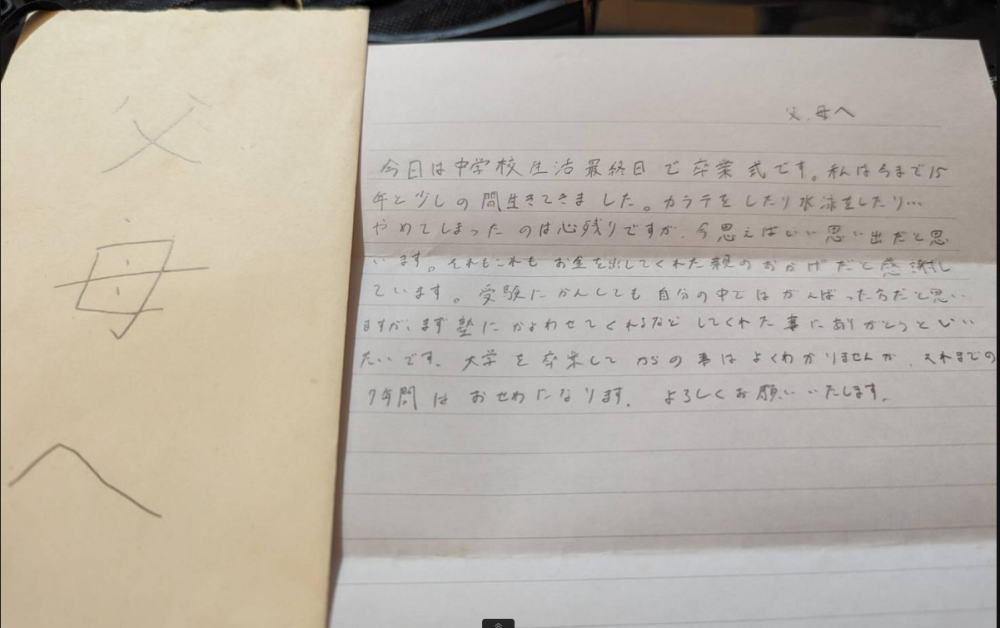 父
母
へ
父、母へ
今日は中学校生活最終日で卒業式です。私は今まで15
年と少しの間生きてきました。カラテをしたり水泳をしたり…
やめてしまったのは心残りですが、今思えばいい思い出だと思
います。それもこれもお金を出してくれた親のおかげだと感謝し
ています。受験にかんしても自分の中ではがんばった方だと思い
ますが、まず塾にかよわせてくれるなどしてくれた事にありがとうといい
たいです。大学を卒業してからの事はよくわかりませんが、それまでの
7年間はおせわになります。よろしくお願いいたします。